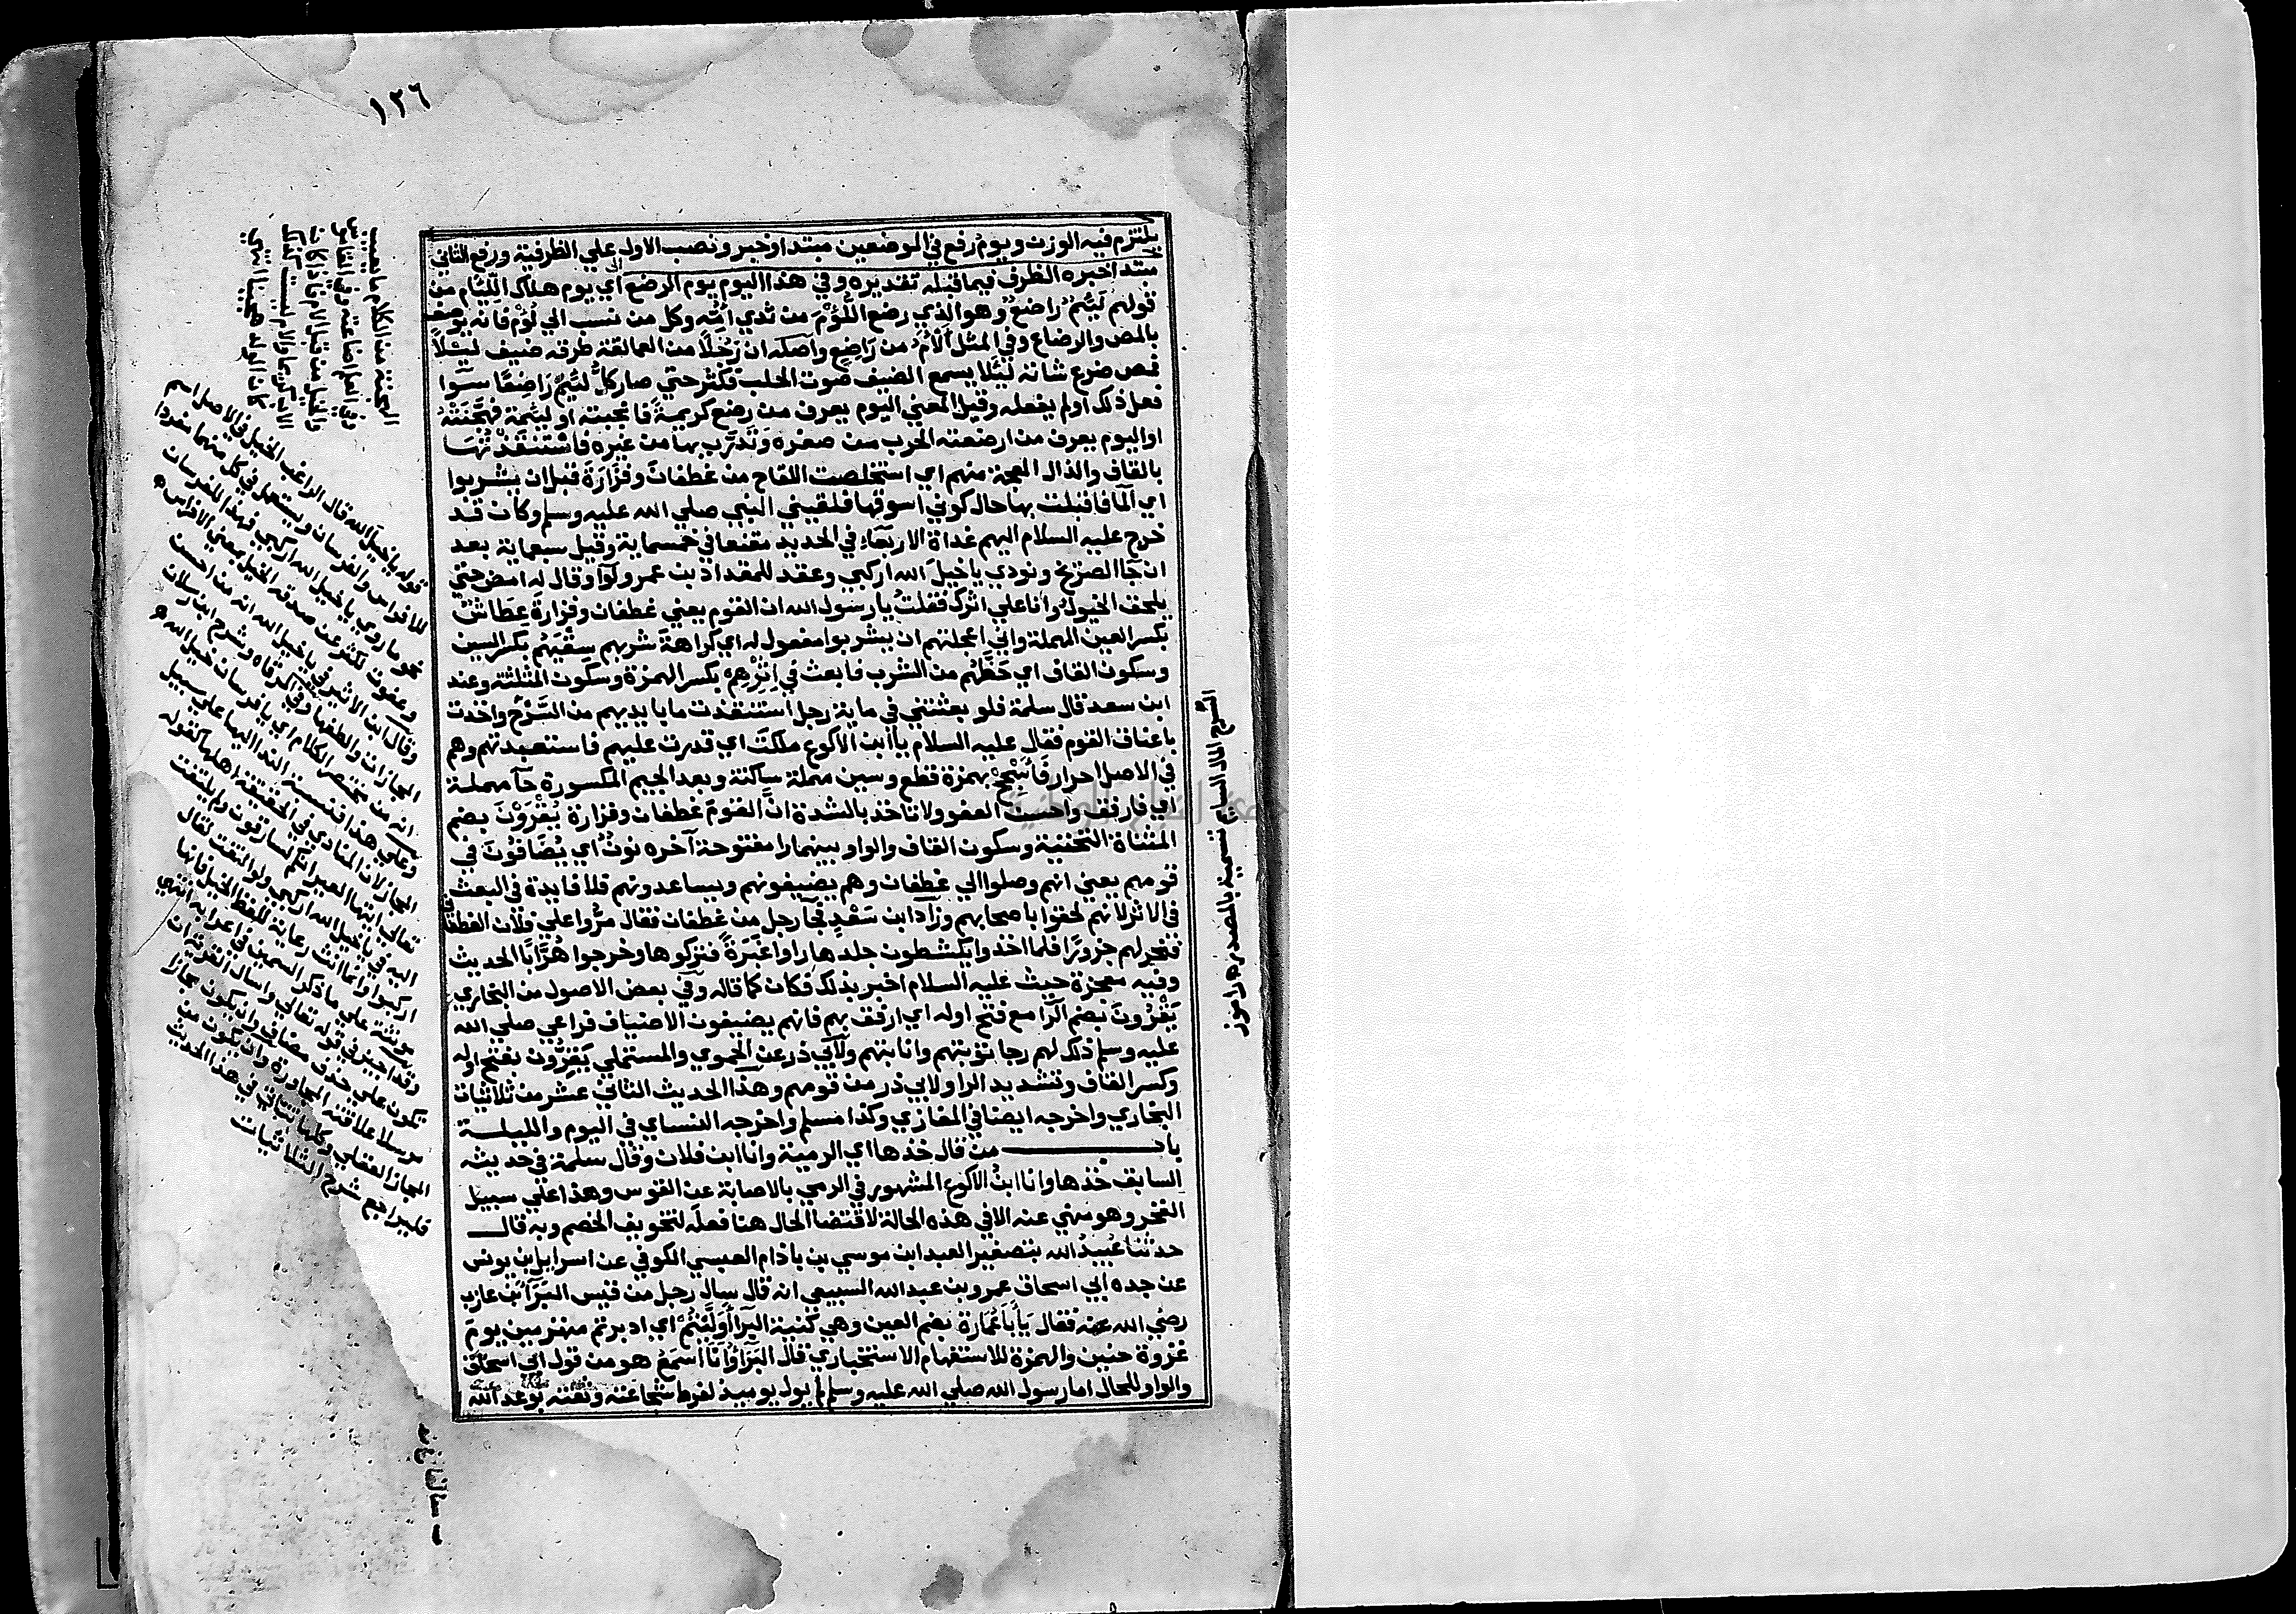 ١٢٦
يلتزم فيه الوزن ويوم رفع في الموضعين مبتدا وخبر ونصب الاول علي الظرفية ورفع الثاني
مبتدا خبره الظرف فيما قبله تقديره وفي هذا اليوم يوم الرضع اي يوم هلاك اللئام من
قولهم لَئِيمٌ رَاضعٌ وهو الذي رضع اللُّؤْمَ من ثدي امّه وكل من نسب الي لُؤْم فانه يوصف
بالمص والرضاع وفي المثل أَلْأَمُ من رَاضِعٍ واصله ان رَجُلاً من العمالقة طرقه ضيف ليلاً
فمص ضرع شاته لئلا يسمع الضيف صوت الحلب فكثر حتي صار كلُّ لئيمٍ رَاضِعًا سوا
فعل ذلك اولم يفعله وقيل المعني اليوم يعرف من رضع كريمةً فانجبته او لئيمة فهَجَّنَتْهُ
او اليوم يعرف من ارضعته الحرب من صغره وتَدَرَّب بها من غيره فاسْتَنقَذْتُهَا
بالقاف والذال المعجمة منهم اي استخلصت اللقاح من غطفان وفَزَارَةَ قبل ان يشربوا
اي الما فاقبلت بها حال كوني اسوقها فلقيني النبي صلي الله عليه وسلم وكان قد
خرج عليه السلام اليهم غداة الاربعاء في الحديد مقنعا في خمسماية وقيل سبعماية بعد
ان جا الصريخ ونودي يا خيلَ الله اركبي وعقد للمقداد بن عمرو لوآ وقال له امض حتي
يلحق الخيول وانا علي اثرك فقلتُ يا رسول الله ان القوم يعني غطفان وفزارة عِطَاشٌ
بكسر العين المهملة واني اعجلتهم ان يشربوا مفعول له اي كراهة شربهم سِقْيَهُم بكسر السين
وسكون القاف اي حَظَّهُم من الشرب فابعث في اِثْرِهِمْ بكسر الهمزة وسكون المثلثة وعند
ابن سعد قال سلمة فلو بعثتني في ماية رجل استنقذت ما بايديهم من السَّرْح واخذت
باعناق القوم فقال عليه السلام يا ابن الاكوع ملكتَ اي قدرت عليهم فاستعبدتهم وهم
في الاصل احرار فَأَسْجِحْ بهمزة قطع وسين مهملة ساكنة وبعد الجيم المكسورة حآ مهملة
اي فارفق واحسن العفو ولا تاخذ بالشدة انَّ القومَ غطفان وفزارة يُقْرَوْنَ بضم
المثناة التحتية وسكون القاف والواو بينهما را مفتوحة آخره نونٌ اي يُضَافُوْنَ في
قومهم يعني انهم وصلوا الي غطفان وهم يضيفونهم ويساعدونهم فلا فايدة في البعث
في الاثر لانهم لحقوا باصحابهم وزاد ابن سَعْدٍ فجآ رجل من غطفان فقال مرُّوا علي فلان الغطفاني
فنحر لهم جزورًا فلما اخذوا يكشطون جلدها راوا غَبَرَةً فتركوها وخرجوا هُرَّابًا الحديث
وفيه معجزة حيث عليه السلام اخبر بذلك فكان كما قاله وفي بعض الاصول من البخاري
يَقْرُونَ بضم الرآ مع فتح اوله اي ارفق بهم فانهم يضيفون الاضياف فراعي صلي الله
عليه وسلم ذلك لهم رجا توبتهم وانابتهم ولأبي ذر عن الحموي والمستملي يَقِرُّون بفتح اوله
وكسر القاف وتشديد الرا ولابي ذر من قومهم وهذا الحديث الثاني عشر من ثلاثيات
البخاري واخرجه ايضا في المغازي وكذا مسلم واخرجه النساي في اليوم والليلة
باب من قال خذها اي الرمية وانا ابن فلان وقال سلمة في حديثه
السابق خذها وانا ابنُ الاكوع المشهور في الرمي بالاصابة عن القوس وهذا علي سبيل
الفخر وهو منهي عنه الا في هذه الحالة لاقتضا الحال هنا فعله لتخويف الخصم وبه قال
حدثنا عُبيدُ الله بتصغير العبد ابن موسي بن باذام العبسي الكوفي عن اسرايل بن يونس
عن جده ابي اسحاق عمرو بن عبد الله السبيعي انه قال سال رجل من قيس البَرَآ ابْن عازب
رضي الله عنه فقال يَا أَبَا عُمَارة بضم العين وهي كنية البرا أَوَلَّيْتُمْ اي ادبرتم منهزمين يومَ
غزوة حنين والهمزة للاستفهام الاستخباري قال البَرَآ وَأنَا أَسمَعُ هو من قول ابي اسحاق
والواو للحال اما رسول الله صلي الله عليه وسلم لم يول يوميذ لفرط شجاعته وثقته بوعد الله
السرح المال السايم تسمية بالمصدر
قوله يا خيل الله قال الراغب الخيل في الاصل اسم
للافراس والفرسان ويستعمل في كل منهما مفردا
نحو ما روي يا خيل الله اركبي فهذا للفرسان
وعفوت لكم عن صدقة الخيل يعني الافراس
وقال ابن الاثير في يا خيل الله انه من احسن
المجازات والطفها وفي المرقاه وشرح ابن رسلان
انه من مختصر الكلام اي يا فرسان خيل الله
وعلي هذا فنسبة الندا اليها علي سبيل
المجاز لان المنادي في الحقيقة اهلها كقوله
تعالي ايتها العير انكم لسارقون ولم يلتفت
اليه في يا خيل الله اركبي ولو التفت لقال
اركبوا وانما انث رعاية للفظ الخيل فانها
مونثة علي ما ذكر السمين في اعرابه انتهي
وقد اجيز في قوله تعالي واسال القرية ان
تكون علي حذف مضاف وان يكون مجازا
مرسلا علاقته المجاورة وان يكون من
المجاز العقلي وكلها تتاتي في هذا الحديث
فليراجع شرح الثلاثيات